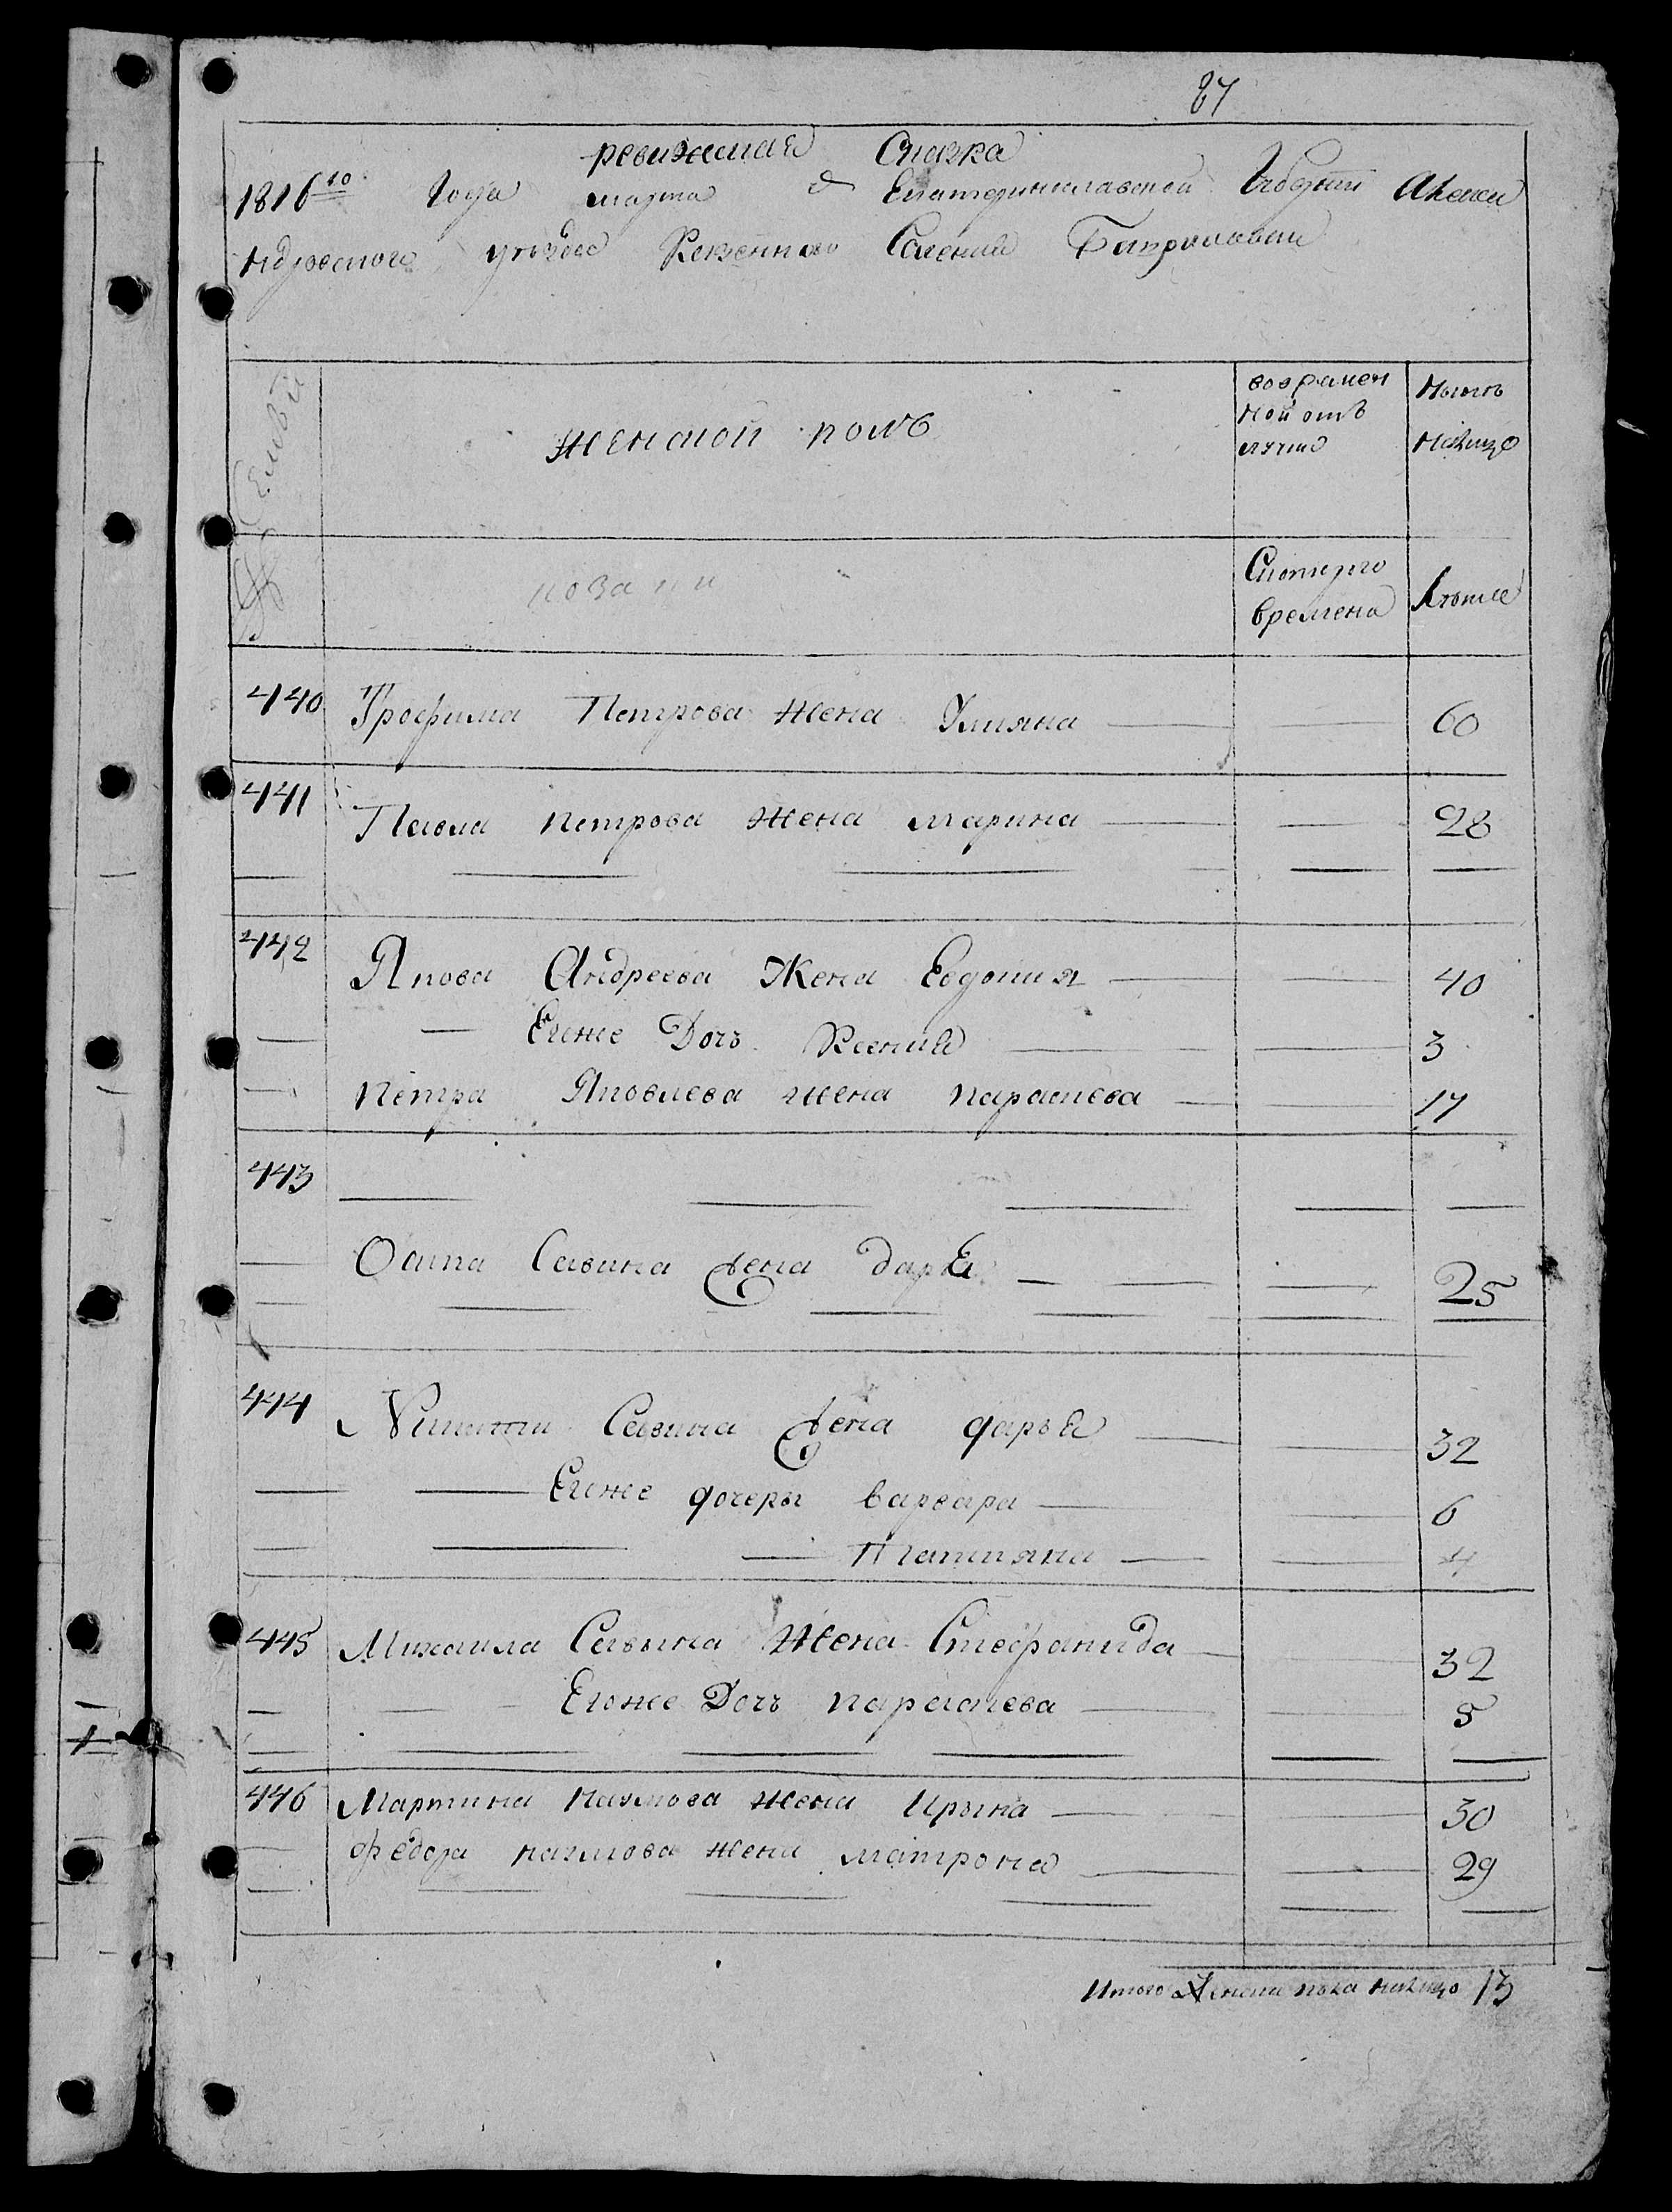 87
ревижская Сказка
1816го Года марта Екатеринославской Губернии Алекса
ндровского уезда Казенного Селения
Семьи
Женской полъ
вовремен
ной отъ
лучке
Ныне
налицо
№
казаки
Скоторого
времени
Лета
440 Трофима Петрова жена Улияна 60
441 Павла петрова жена марина 28
442 Якова Андреева Жена Евдокия 40
Егоже Дочъ Ксения 3
петра Яковлева жена параскева 17
443
Осипа Савина жена даря 25
444 Никиты Савина жена даръя 32
Егоже дочеры варвара 6
Татияна 4
445 Михаила Савына Жена Стефанида 32
Егоже Дочъ параскева 5
446 Мартина наумова жена Ирына 30
федора наумова жена матрона 29
Итого Женска пола налицо 13